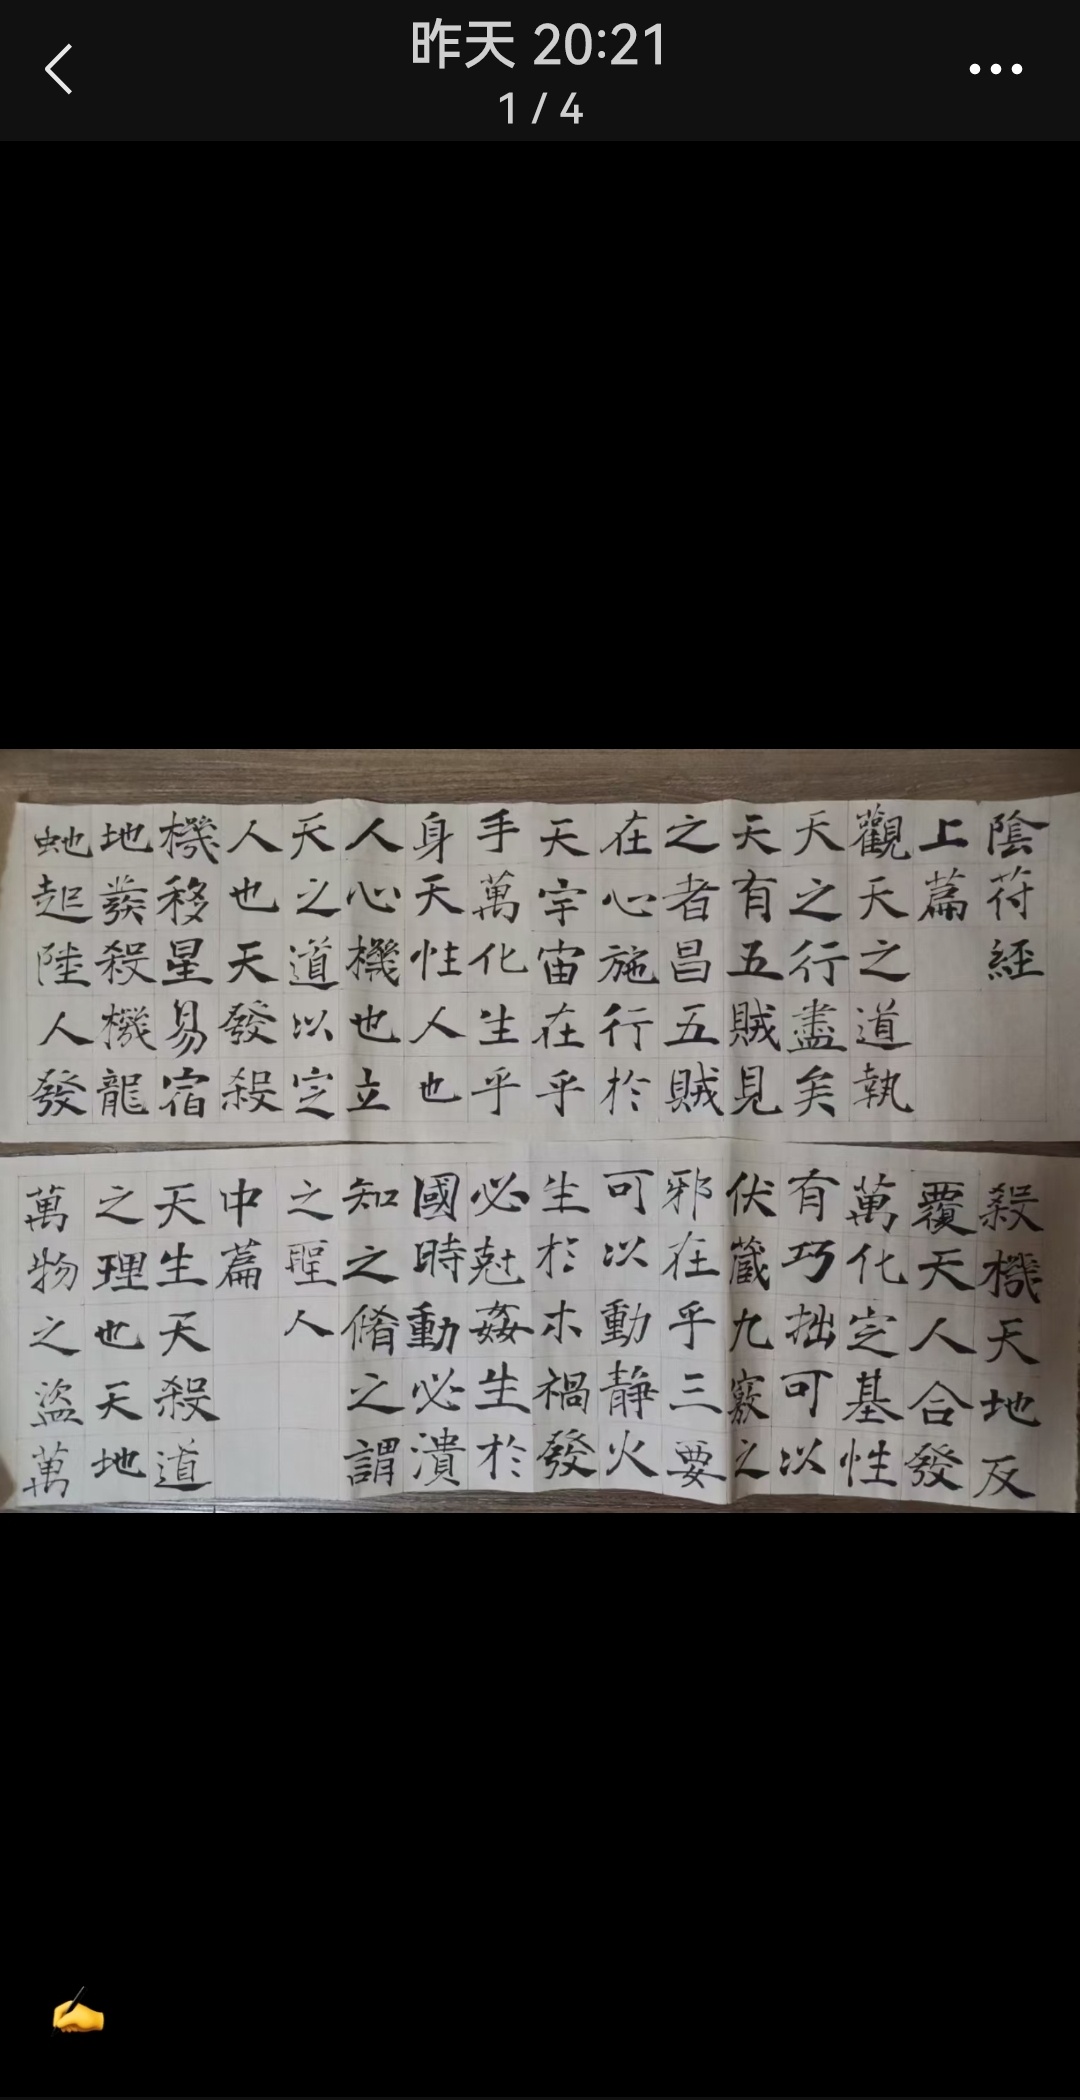 昨天 20:21
1 / 4
陰符經
上篇
觀天之道執
天之行盡矣
天有五賊見
之者昌五賊
在心施行於
天宇宙在乎
手萬化生乎
身天性人也
人心機也立
天之道以定
人也天發殺
機移星易宿
地發殺機龍
虵起陸人發
殺機天地反
覆天人合發
萬化定基性
有巧拙可以
伏藏九竅之
邪在乎三要
可以動静火
生於木禍發
必尅姦生於
國時動必潰
知之脩之謂
之聖人
中篇
天生天殺道
之理也天地
萬物之盜萬